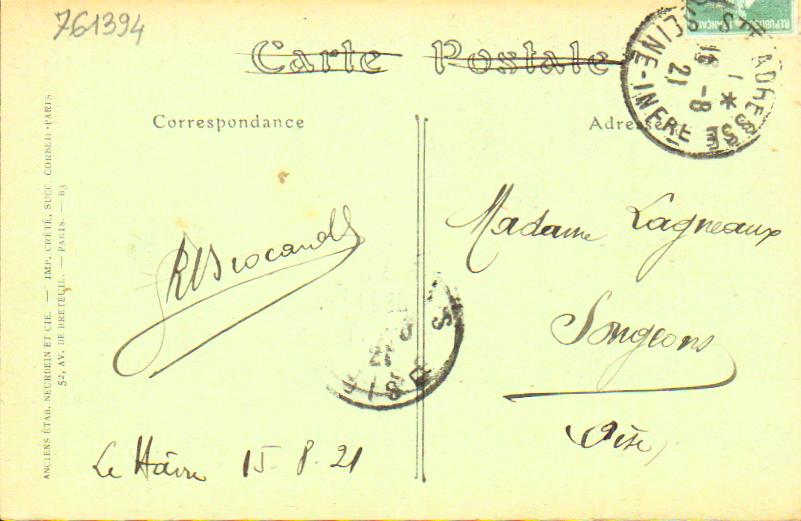 761394
Carte Postale
Correspondance
Adresse
STE ADRESSE
1 *
16 -8
21
SEINE-INFRE
REPUBLIQUE FRANÇAISE
ANCIENS ÉTAB. NEURDEIN ET CIE. — IMP. CRÉTÉ, SUCC. CORBEIL-PARIS
52, AV. DE BRETEUIL. — PARIS. — B3
Madame Lagneaux
Songeons
(Oise)
OISE
Le Hâvre 15-8-21